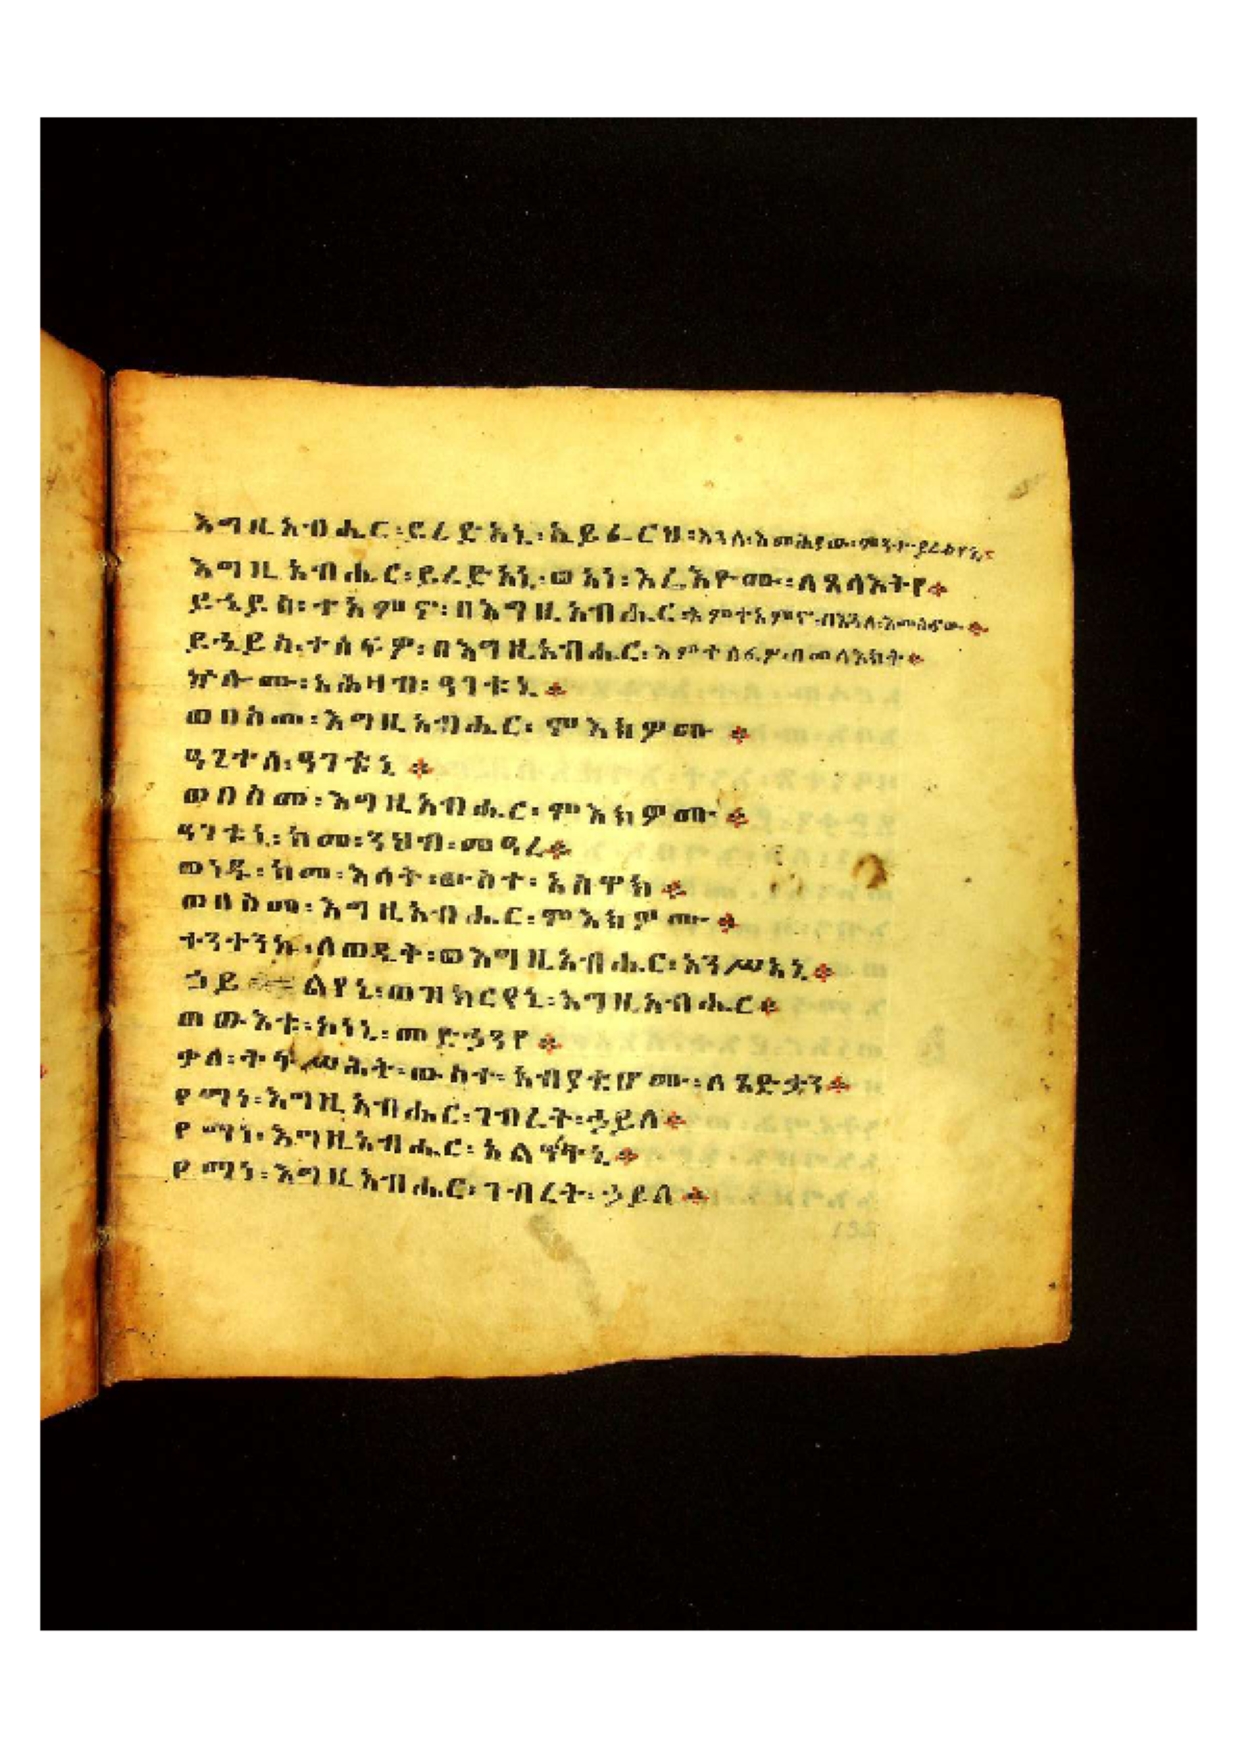 እግዚአብሔር፡ይረድአኒ፡ኢይፈርህ፡እጓለ፡እመሕያው፡ምንተ፡ይሬስየኒ፨
እግዚአብሔር፡ይረድአኒ፡ወአነ፡እሬእዮሙ፡ለጸላእትየ፨
ይኄይስ፡ተአምኖ፡በእግዚአብሔር፡እምተአምኖ፡በእጓለ፡እመሕያው፨
ይኄይስ፡ተሰፍዎ፡በእግዚአብሔር፡እምተሰፍዎ፡በመላእክት፨
ኵሎሙ፡አሕዛብ፡ዓገቱኒ፨
ወበስመ፡እግዚአብሔር፡ሞእክዎሙ፨
ዓጊተሰ፡ዓገቱኒ፨
ወበስመ፡እግዚአብሔር፡ሞእክዎሙ፨
ዓገቱኒ፡ከመ፡ንህብ፡መዓረ፨
ወነዱ፡ከመ፡እሳት፡ውስተ፡አስዋክ፨
ወበስመ፡እግዚአብሔር፡ሞእክዎሙ፨
ተንተንኩ፡ለወዲቅ፡ወእግዚአብሔር፡አንሥአኒ፨
ኃይ ልየኒ፡ወዝክርየኒ፡እግዚአብሔር፨
ወውእቱ፡ኮነኒ፡መድኃንየ፨
ቃለ፡ትፍሥሕት፡ውስተ፡አብያቲሆሙ፡ለጻድቃን፨
የማነ፡እግዚአብሔር፡ገብረት፡ኃይለ፨
የማነ፡እግዚአብሔር፡አልዓለተኒ፨
የማነ፡እግዚአብሔር፡ገብረት፡ኃይለ፨